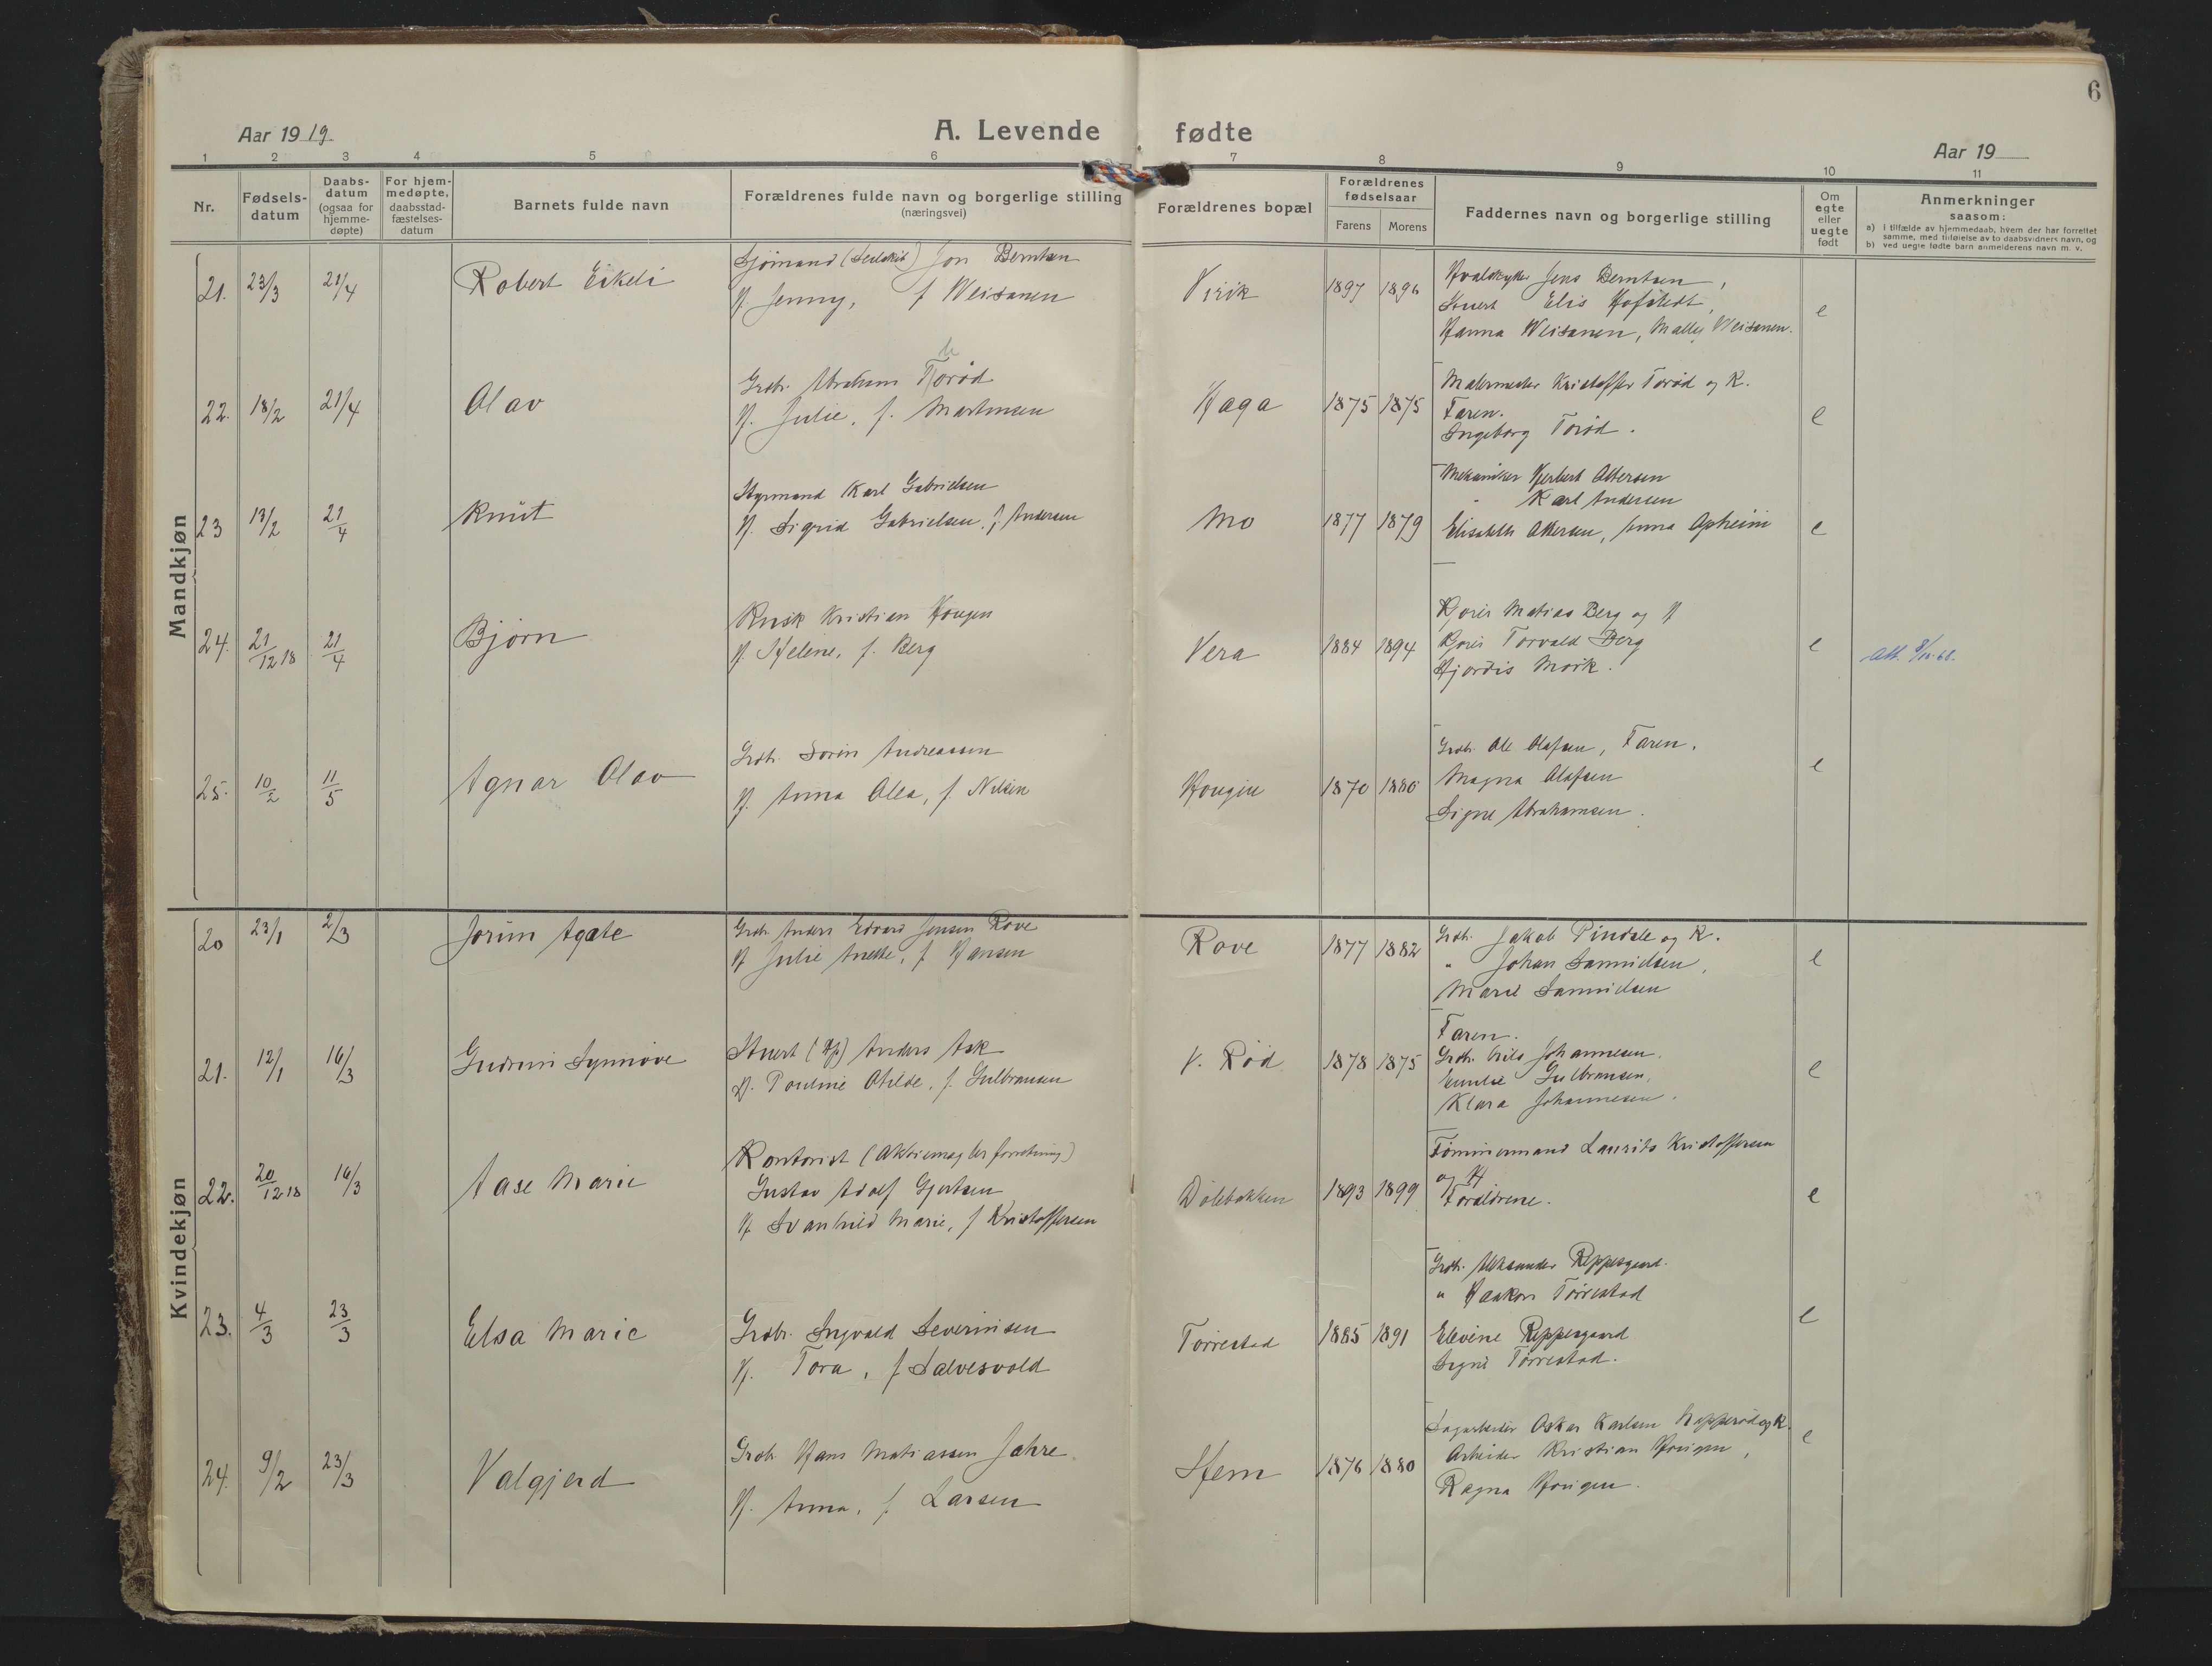 6
Aar 1919
A. Levende fødte
Aar 19
1 2 3 4 5 6 7 8 9 10 11
Nr.
Fødselsdatum
Daabsdatum (ogsaa for hjemmedøpte)
For hjemmedøpte, daabsstadfæstelsesdatum
Barnets fulde navn
Forældrenes fulde navn og borgerlige stilling (næringsvei)
Forældrenes bopæl
Forældrenes fødselsaar
Farens Morens
Faddernes navn og borgerlige stilling
Om egte eller uegte født
Anmerkninger
saasom:
a) i tilfælde av hjemmedaab, hvem der har forrettet samme, med tilføielse av to daabsvidners navn, og
b) ved uegte fødte barn anmelderens navn m. v.
Mandkjøn
21. 23/3 21/4 Robert Eikeli
Sjømand Jon Berntsen
H. Jenny, f Weisanen
Virik 1897 1896
Hvalskytter Jens Berntsen,
Stuert Elis Hofstedt,
Hanna Weisanen, Mally Weisanen.
e
22. 18/2 21/4 Olav
Grdbr. Abraham Torød
H. Julie, f. Martinsen
Haga 1875 1875
Malermester Kristoffer Torød og K.
Faren.
Ingeborg Torød.
e
23 13/2 21/4 Knut
Styrmand Karl Gabrielsen
H. Sigrid Gabrielsen, f. Andersen
Mo 1877 1879
Mekaniker Herbert Attersen
" Karl Andersen
Elisabeth Attersen, Anna Apheim
e
24. 21/12 18 21/4 Bjørn
Kusk Kristian Hougen
H. Helene, f. Berg
Vera 1884 1894
Kjører Matias Berg og H
Kjører Torvald Berg
Hjørdis Mørk.
e
Att.
25. 10/2 11/5 Agnar Olav
Grdbr. Sørin Andreassen
H. Anna Olea, f. Nilsen
Hougen 1870 1880
Grdbr. Ole Olafsen, Faren.
Magna Olafsen
Signe Abrahamsen.
e
Kvindekjøn
20 23/1 2/3 Jorun Agate
Grdbr. Anders Edvard Jensen Rove
H Julie Anette, f Hansen
Rove 1877 1882
Grdbr. Jakob Pindsle og K.
" Johan Samuelsen,
Marie Samuelsen
e
21. 12/1 16/3 Gudrun Synnøve
Stuert Anders Ask
H. Pouline Otilde, f. Gulbransen
V. Rød 1878 1875
Faren.
Grdbr. Nils Johannesen.
Emilie Gulbransen,
Klara Johannesen.
e
22. 20/12 18 16/3 Aase Marie
Kontorist (Aktiemæglerforretning)
Gustav Adolf Gjertsen
H. Svanhild Marie, f Kristoffersen
Dølebakken 1893 1899
Tømmermand Laurits Kristoffersen
og H
Forældrene.
e
23. 4/3 23/3 Elsa Marie
Grdbr. Ingvald Severinsen
H. Tora, f Salvesvold
Tørrestad 1885 1891
Grdbr. Aleksander Reppesgaard.
" Haakon Tørrestad
Elevine Reppesgaard
Signe Tørrestad.
e
24. 9/2 23/3 Valgjerd
Grdbr. Hans Matiassen Jahre
H. Anna, f Larsen
Hem 1876 1880
Sagarbeider Oskar Karlsen Napperød og K.
Arbeider Kristian Hougen,
Ragna Hougen.
e